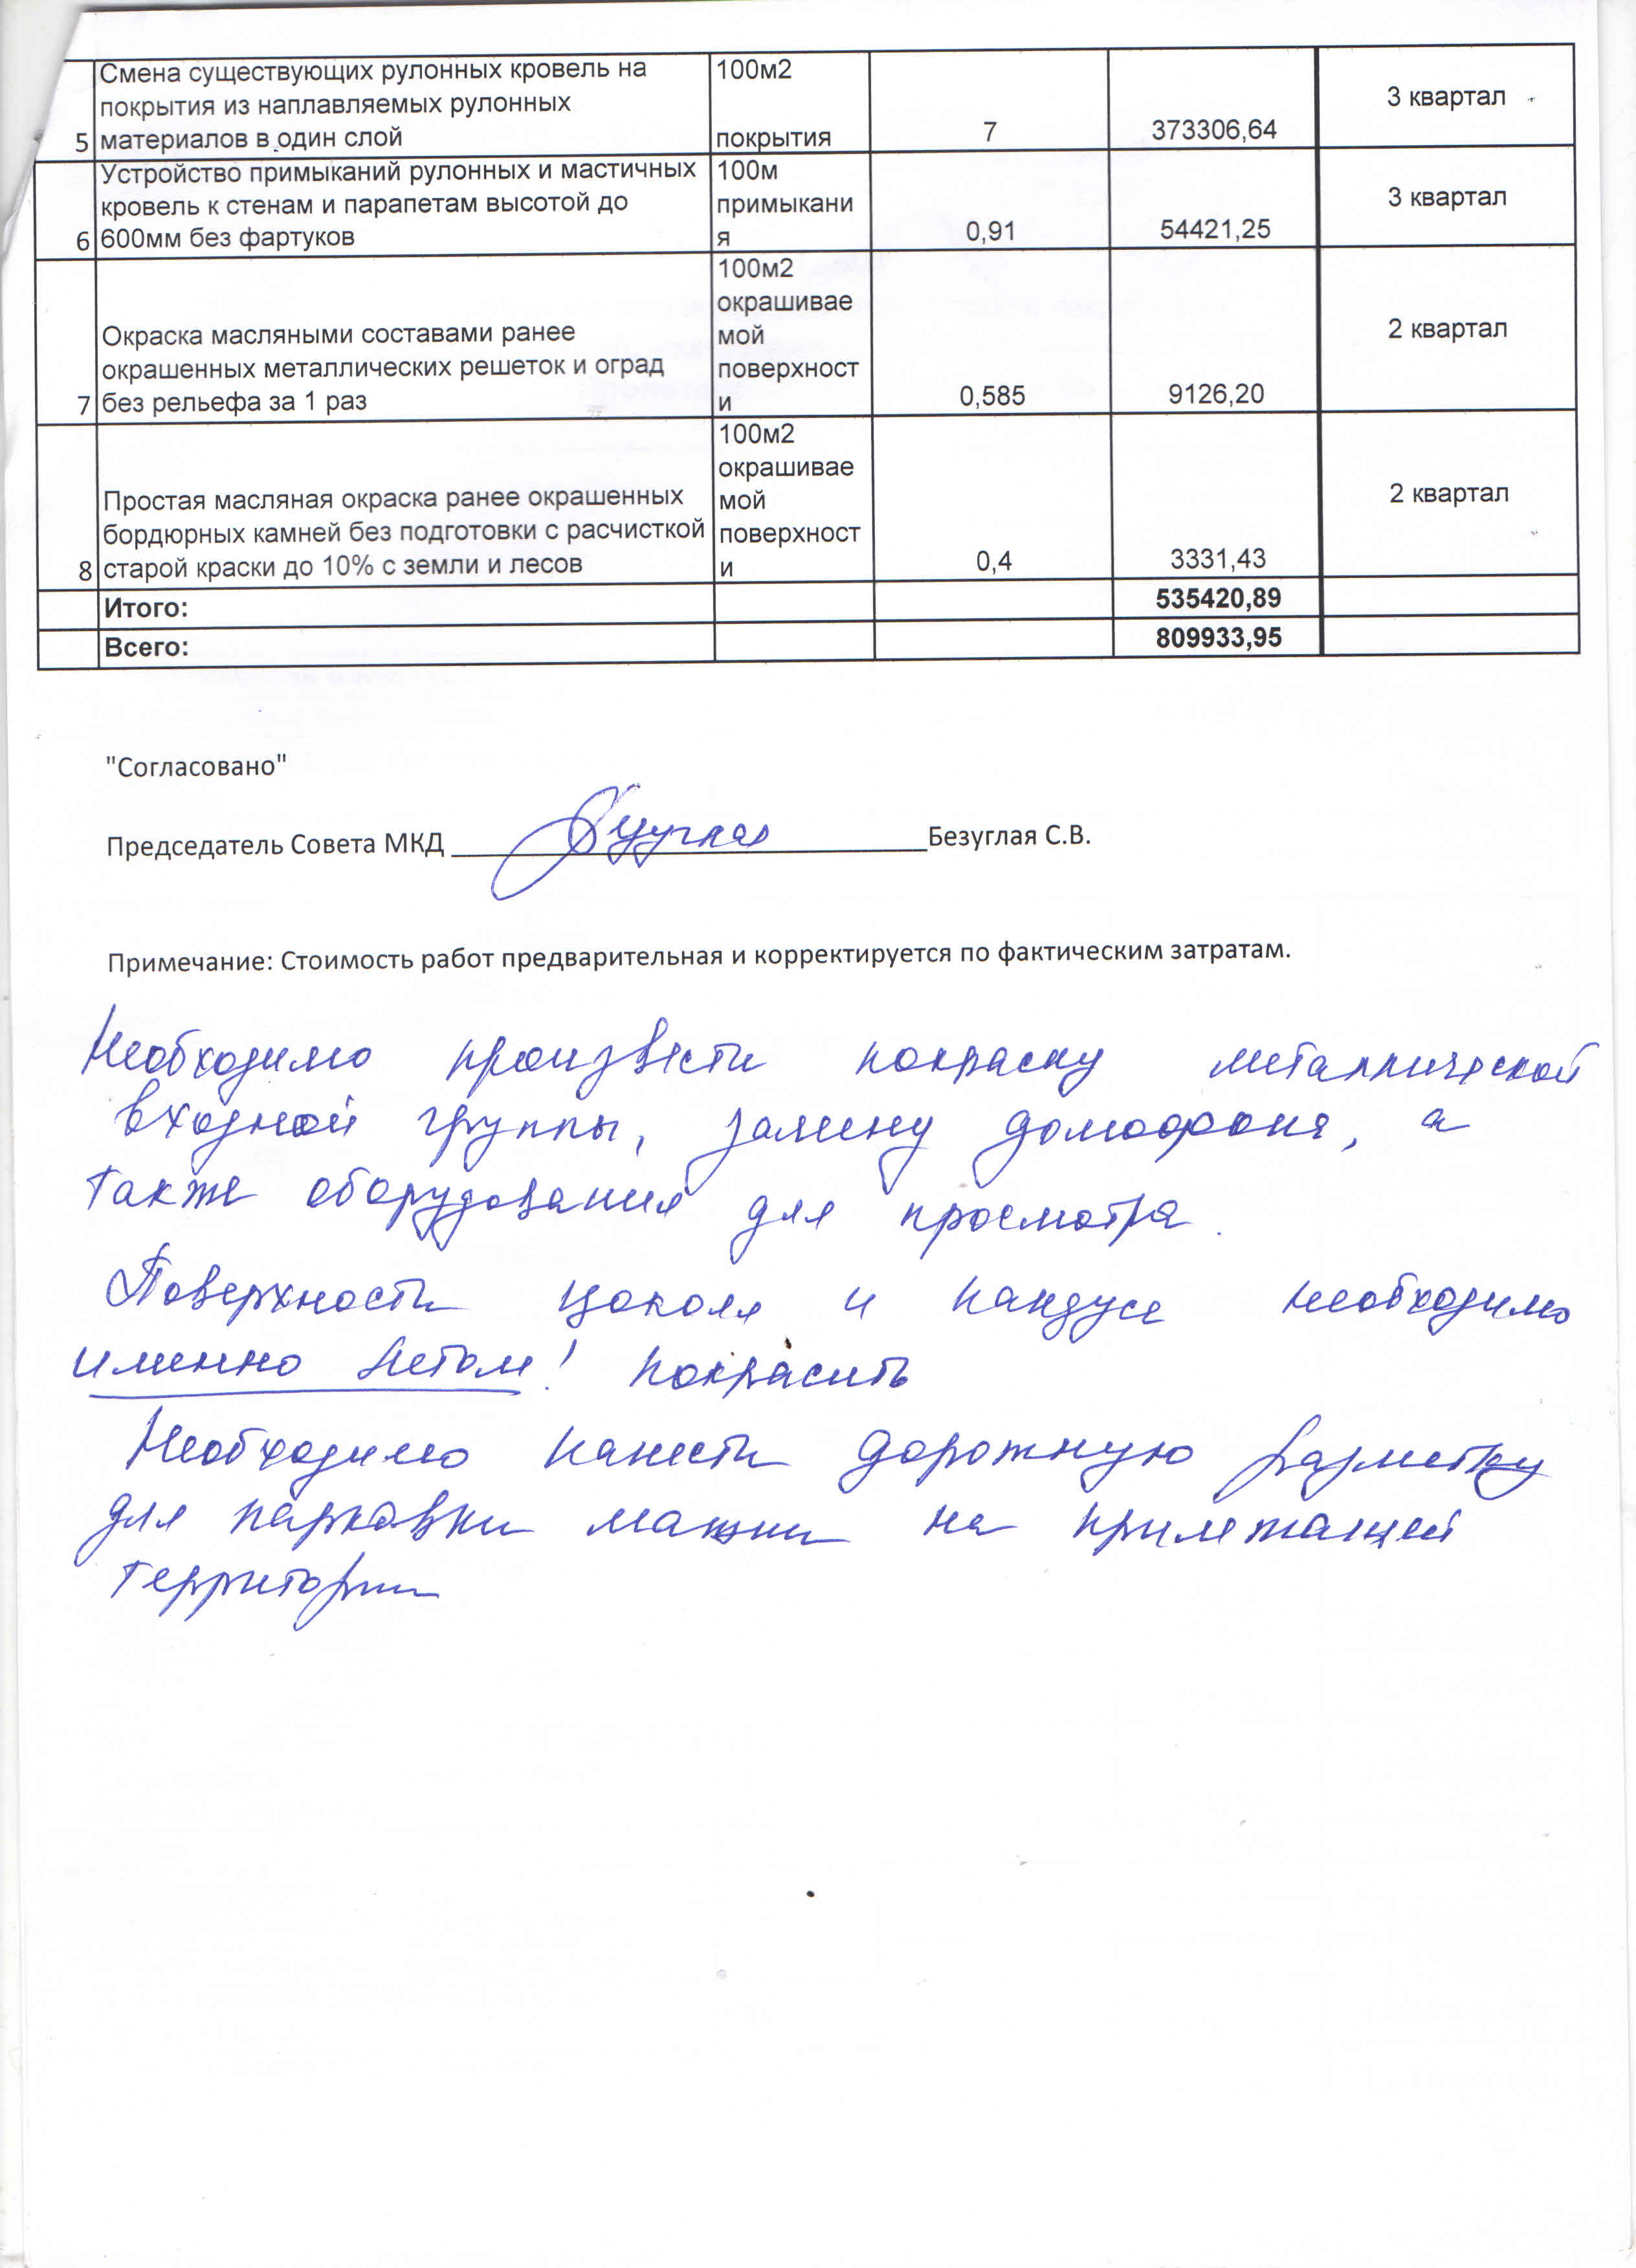 Смена существующих рулонных кровель на
покрытия из наплавляемых рулонных
материалов в один слой
5
100м2
покрытия
7
373306,64
3 квартал
Устройство примыканий рулонных и мастичных
кровель к стенам и парапетам высотой до
600мм без фартуков
6
100м
примыкани
я
0,91
54421,25
3 квартал
Окраска масляными составами ранее
окрашенных металлических решеток и оград
без рельефа за 1 раз
7
100м2
окрашивае
мой
поверхност
и
0,585
9126,20
2 квартал
Простая масляная окраска ранее окрашенных
бордюрных камней без подготовки с расчисткой
старой краски до 10% с земли и лесов
8
100м2
окрашивае
мой
поверхност
и
0,4
3331,43
2 квартал
Итого: 535420,89
Всего: 809933,95
"Согласовано"
Председатель Совета МКД Безуглая С.В.
Примечание: Стоимость работ предварительная и корректируется по фактическим затратам.
Необходимо произвести покраску металлической
входной группы, замену домофона, а
также оборудования для просмотра.
Поверхности цоколя и пандуса необходимо
именно летом! покрасить
Необходимо нанести дорожную разметку
для парковки машин на прилежащей
территории